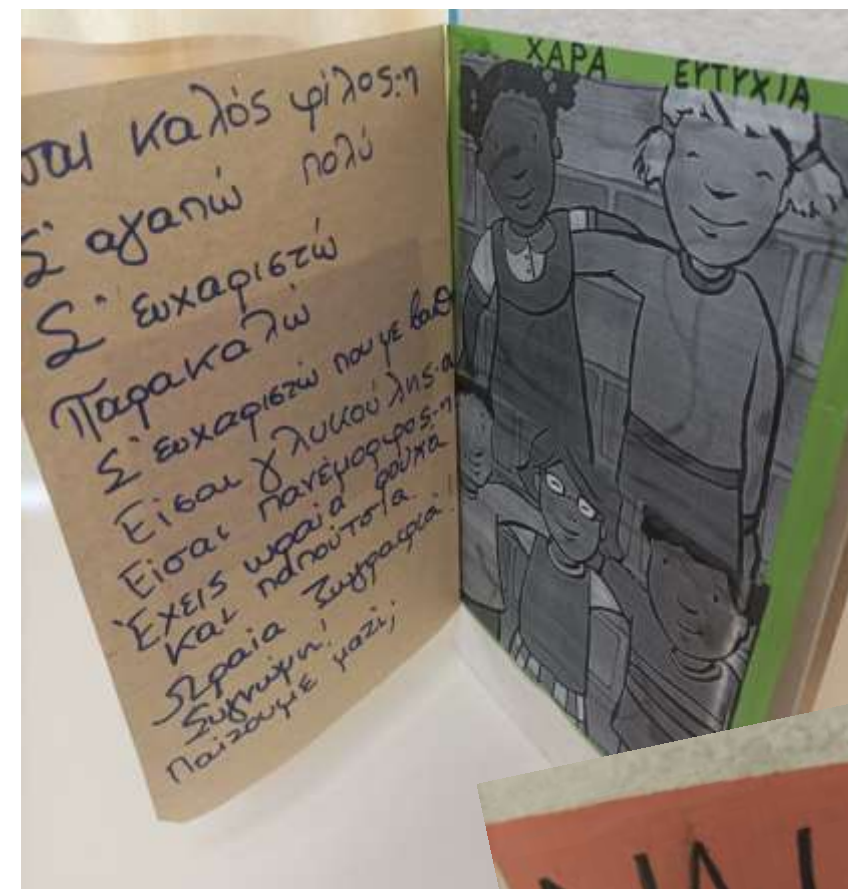 σαι καλός φίλος-η
Σ' αγαπώ πολύ
Σ' ευχαριστώ
Παρακαλώ
Σ' ευχαριστώ που με βοηθ
Είσαι γλυκούλης-α
Είσαι πανέμορφος-η
Έχεις ωραία ρούχα
και παπούτσια
Ωραία ζωγραφιά!
Συγνώμη!
Παίζουμε μαζί;
ΧΑΡΑ ΕΥΤΥΧΙΑ